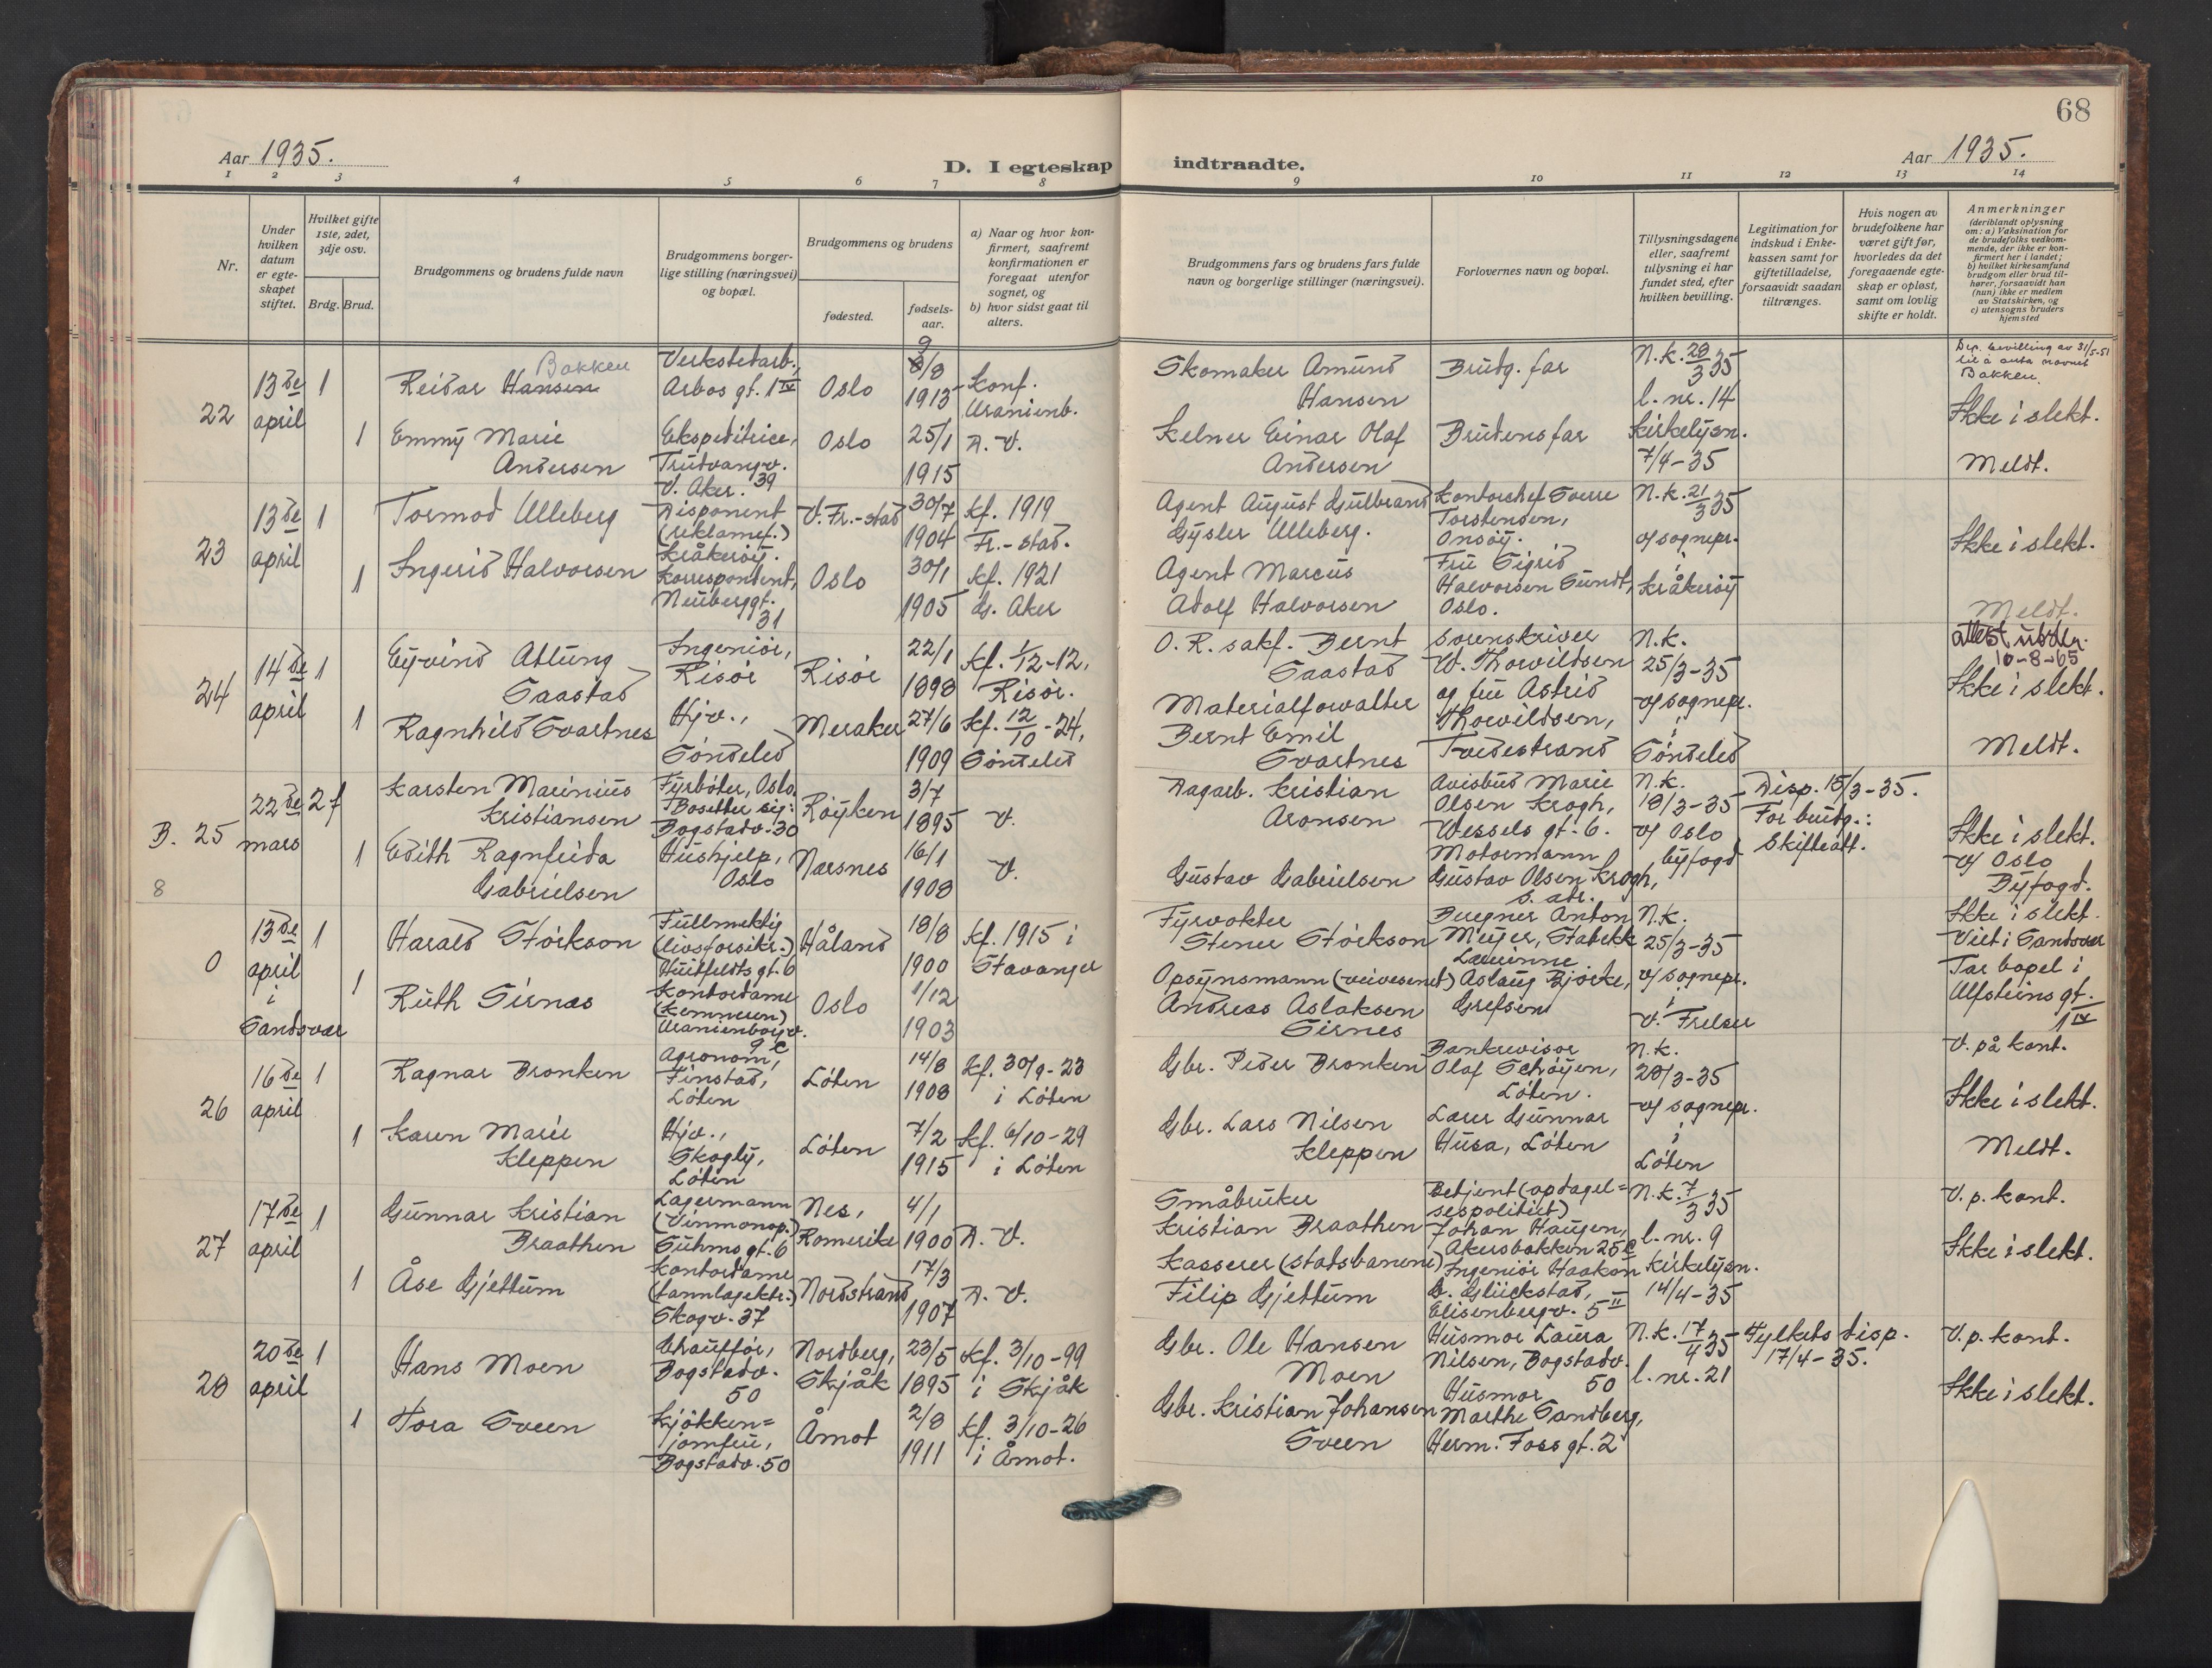 68
Aar 1935.
D. I egteskap indtraadte.
Aar 1935.
1 2 3 4 5 6 7 8 9 10 11 12 13 14
Nr.
Under hvilken datum er egteskapet stiftet.
Hvilket gifte 1ste, 2det, 3dje osv.
Brdg. Brud.
Brudgommens og brudens fulde navn
Brudgommens borgerlige stilling (næringsvei) og bopæl.
Brudgommens og brudens
fødested.
fødselsaar.
a) Naar og hvor konfirmert, saafremt konfirmationen er foregaat utenfor sognet, og
b) hvor sidst gaat til alters.
Brudgommens fars og brudens fars fulde navn og borgerlige stillinger (næringsvei).
Forlovernes navn og bopæl.
Tillysningsdagene eller, saafremt tillysning ei har fundet sted, efter hvilken bevilling.
Legitimation for indskud i Enkekassen samt for giftetilladelse, forsaavidt saadan tiltrænges.
Hvis nogen av brudefolkene har været gift før, hvorledes da det foregaaende egteskap er opløst, samt om lovlig skifte er holdt.
Anmerkninger
(deriblandt oplysning om: a) Vaksination for de brudefolks vedkommende, der ikke er konfirmert her i landet;
b) hvilket kirkesamfund brudgom eller brud tilhører, forsaavidt han (hun) ikke er medlem av Statskirken, og
c) utensogns bruders hjemsted
22
13de april
1
Reidar Hansen
Bakken
Verkstedarb., Arbos gt. 1 IV
Oslo
9/8 1913
Konf. Uranienb.
Skomaker Amund Hansen
Brudg. far
N.k. 28/3 35
l. nr. 14
Dep. bevilling av 31/5-51 til å anta navnet Bakken.
Ikke i slekt.
1
Emmy Marie Andersen
Ekspeditrice, Trudvangv. 39 V. Aker.
Oslo
25/1 1915
D. V.
Kelner Einar Olaf Andersen
Brudens far
Kirkelysn. 7/4-35
Meldt.
23
13de april
1
Tormod Ulleberg
Disponent (reklamef.) Kråkeröy.
V. Fr.-stad
30/7 1904
Kf. 1919 Fr.-stad.
Agent August Gulbrand Gysler Ulleberg.
Kontorchef Sverre Torstensen, Onsöy.
N.k. 21/3 35
v/ sognepr. i Kråkeröy
Ikke i slekt.
1
Ingerid Halvorsen
Korrespondent, Neuberggt. 31
Oslo
30/1 1905
Kf. 1921 Ö. Aker
Agent Marcus Adolf Halvorsen
Fru Sigrid Halvorsen Sundt, Oslo.
Meldt.
24
14de april
1
Eyvind Atlung Saastad
Ingeniör, Risör
Risör
22/1 1898
Kf. 1/12-12, Risör.
O. R. sakf. Bernt Saastad
Sorenskriver W. Thorvildsen og fru Astrid Thorvildsen, Tvedestrand
N.k. 25/3-35
v/ sognepr. i Söndeled
attest utsten. 10-8-65
Ikke i slekt.
1
Ragnhild Svartnes
Hjv., Söndeled
Meraker
27/6 1909
Kf. 12/10-24, Söndeled
Materialforvalter Bernt Emil Svartnes
Meldt.
B. 25
8
22de mars
2 f
Karsten Marinius Kristiansen
Fyrböter, Oslo. Bosetter sig: Bogstadv. 30
Röyken
3/7 1895
V.
Dagarb. Kristian Aronsen
Avisbud Marie Olsen Krogh, Wessels gt. 6.
N.k. 18/3-35
v/ Oslo byfogd
Disp. 15/3-35.
For brudg.: Skifteatt.
Ikke i slekt.
v/ Oslo Byfogd.
1
Edith Ragnfrida Gabrielsen
Hushjelp, Oslo
Narsnes
16/1 1908
V.
Gustav Gabrielsen
Motormann Gustav Olsen Krogh, s. adr.
0
13de april i Sandsvær
1
Harald Störkson
Fullmektig (livsforsikr.) Huitfeldts gt. 6
Håland
18/8 1900
Kf. 1915 i Stavanger
Fyrvokter Stener Störkson
Anton Meyer, Stabekk
N.k. 25/3-35
v/ sognepr. i V. Frelser
Ikke i slekt.
Viet i Sandsvær
Tar bopel i Ulfsteins gt. 1 IV
1
Ruth Sirnes
Kontordame (kemneren) Uranienborgv. 9 c
Oslo
1/12 1903
Opsynsmann (veivesenet) Andreas Aslaksen Sirnes
Lærerinne Aslaug Bjørke, Grefsen
26
16de april
1
Ragnar Bronken
Agronom, Finstad, Löten
Löten
14/8 1908
Kf. 30/9-23 i Löten
Gbr. Peder Bronken
Bankrevisor Olaf Schöyen, Löten.
N.k. 28/3-35
v/ sognepr. i Löten
V. på kont.
Ikke i slekt.
1
Karen Marie Kleppen
Hjv., Skogly, Löten
Löten
7/2 1915
Kf. 6/10-29 i Löten
Gbr. Lars Nilsen Kleppen
Lærer Gunnar Husa, Löten
Meldt.
27
17de april
1
Gunnar Kristian Braathen
Lagermann (Vinmonop.) Suhms gt. 6
Nes, Romerike
4/1 1900
D. V.
Småbruker Kristian Braathen
Betjent (opdagelsespolitiet) Johan Haugen, Akersbakken 25 c
N.k. 7/3 35
l. nr. 9
V. p. kont.
Ikke i slekt.
1
Åse Gjettum
Kontordame (tannlegektr.) Skogv. 37
Nordstrand
17/3 1907
D. V.
Kasserer (statsbanene) Filip Gjettum
Ingeniör Haakon B. Glückstad, Elisenbergv. 5 II
Kirkelysn. 14/4-35
28
20de april
1
Hans Moen
Chauffför, Bogstadv. 50
Nordberg, Skjåk
23/5 1895
Kf. 3/10-99 i Skjåk
Gbr. Ole Hansen Moen
Husmor Laura Nilsen, Bogstadv. 50
N.k. 17/4 35
l. nr. 21
Fylkets disp. 17/4-35.
V. p. kont.
Ikke i slekt.
1
Tora Sveen
Kjökkenjomfru, Bogstadv. 50
Åmot
2/8 1911
Kf. 3/10-26 i Åmot.
Gbr. Kristian Johansen Sveen
Husmor Marthe Sandberg, Herm. Foss gt. 2